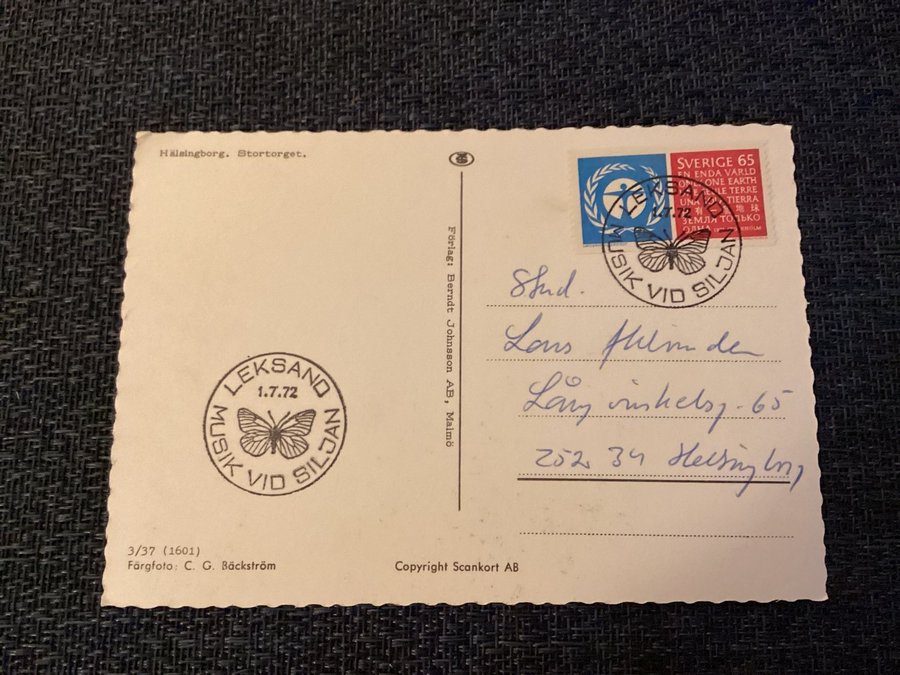 Hälsingborg. Stortorget.
SVERIGE 65
EN ENDA VÄRLD
ONE EARTH
TERRE
UNA TIERRA
地球
ЗЕМЛЯ ТОЛЬКО
ОДНА
LEKSAND
1.7.72
MUSIK VID SILJAN
Förlag: Berndt Johnsson AB, Malmö
Stud.
Lars
Långvinkelsg. 65
252 34 Helsingborg
LEKSAND
1.7.72
MUSIK VID SILJAN
3/37 (1601)
Färgfoto: C. G. Bäckström
Copyright Scankort AB